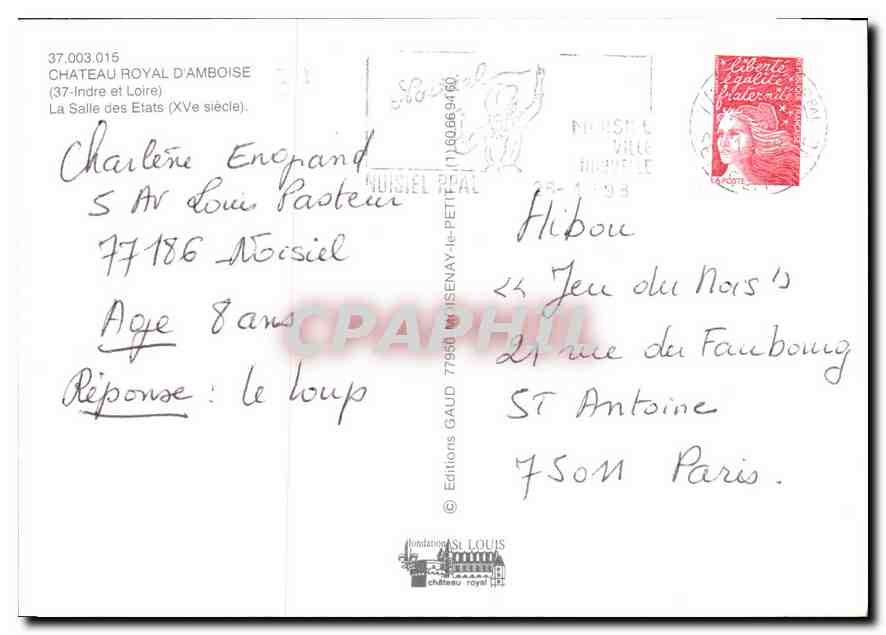 37.003.015
CHATEAU ROYAL D'AMBOISE
(37-Indre et Loire)
La Salle des Etats (XVe siècle).
Charlène Engrand
5 AV Louis Pasteur
77186 Noisiel
Age 8 ans
Réponse : le loup
© Editions GAUD 77950 MOISENAY-le-PETIT (1) 60.66.94.60.
Noisiel
NOISIEL PPAL
NOISIEL
VILLE
NOUVELLE
liberté
égalité
fraternité
LA POSTE
Hibou
" Jeu du Mois "
21 rue du Faubourg
ST Antoine
75011 Paris.
CPAPHIL
fondation St LOUIS
château royal